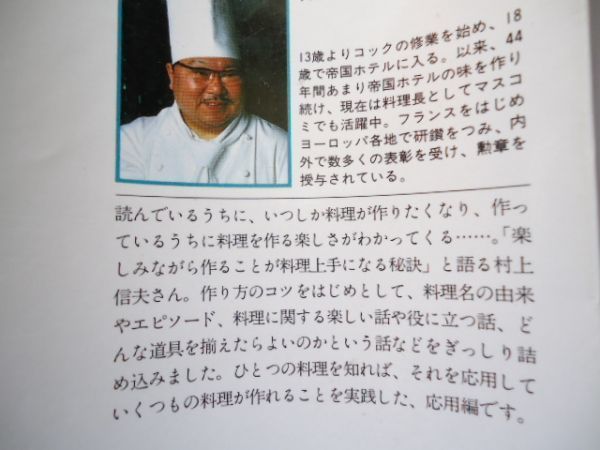 13歳よりコックの修業を始め、18
歳で帝国ホテルに入る。以来、44
年間あまり帝国ホテルの味を作り
続け、現在は料理長としてマスコ
ミでも活躍中。フランスをはじめ
ヨーロッパ各地で研鑽をつみ、内
外で数多くの表彰を受け、勲章を
授与されている。
読んでいるうちに、いつしか料理が作りたくなり、作っ
ているうちに料理を作る楽しさがわかってくる……。「楽
しみながら作ることが料理上手になる秘訣」と語る村上
信夫さん。作り方のコツをはじめとして、料理名の由来
やエピソード、料理に関する楽しい話や役に立つ話、ど
んな道具を揃えたらよいのかという話などをぎっしり詰
め込みました。ひとつの料理を知れば、それを応用して
いくつもの料理が作れることを実践した、応用編です。